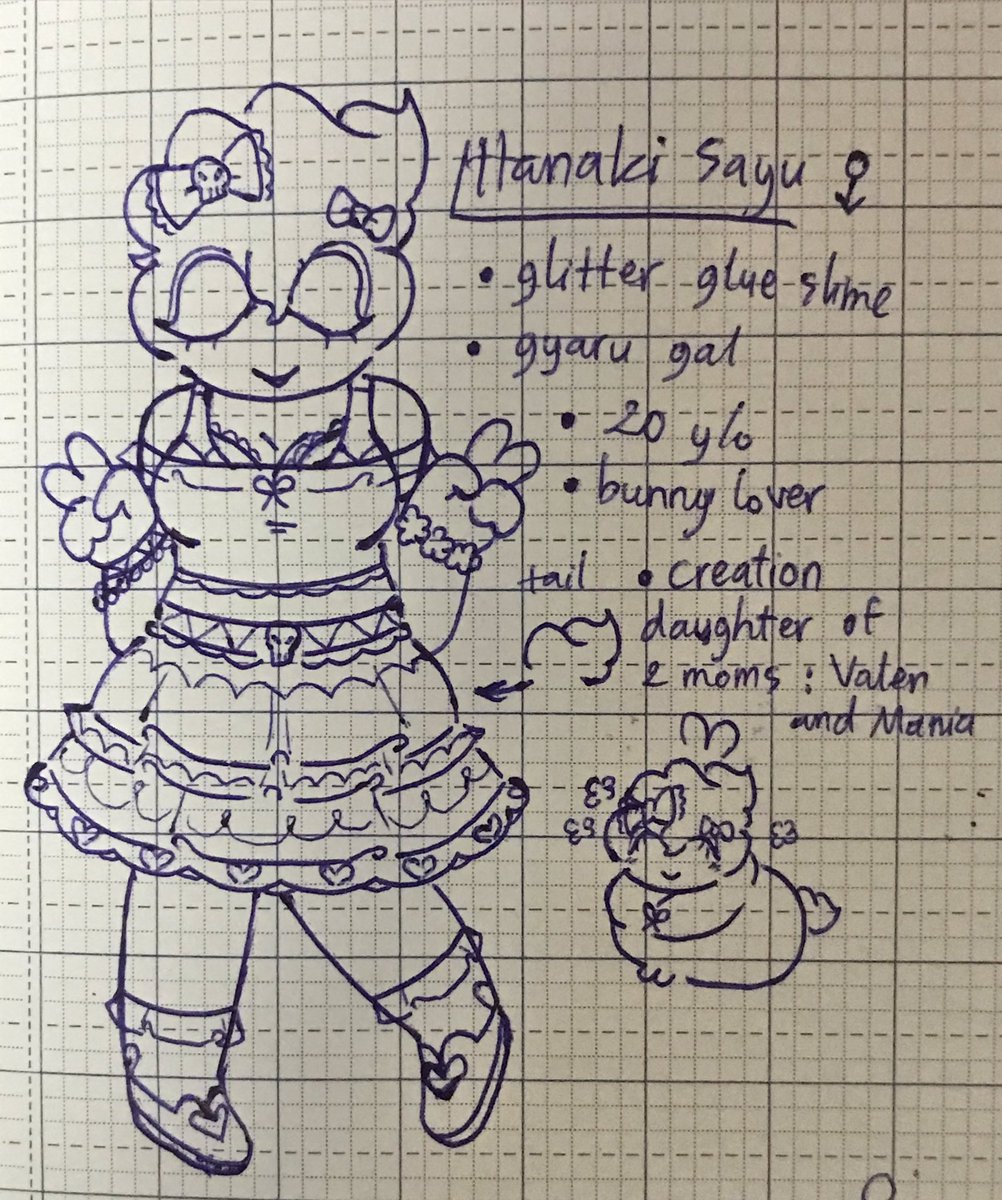 Hanaki Sayu
• glitter glue slime
• gyaru gal
• 20 y/o
• bunny lover
tail
• creation
daughter of
2 moms : Valen
and Mania